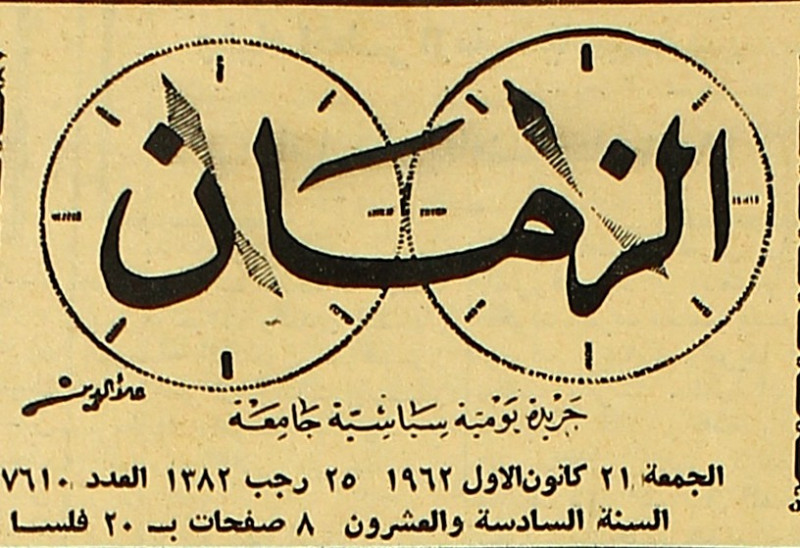 الزمان
علاء الدين
جريدة يومية سياسية جامعة
الجمعة ٢١ كانون الاول ١٩٦٢ ٢٥ رجب ١٣٨٢ العدد ٧٦١٠
السنة السادسة والعشرون ٨ صفحات بـ ٢٠ فلسا